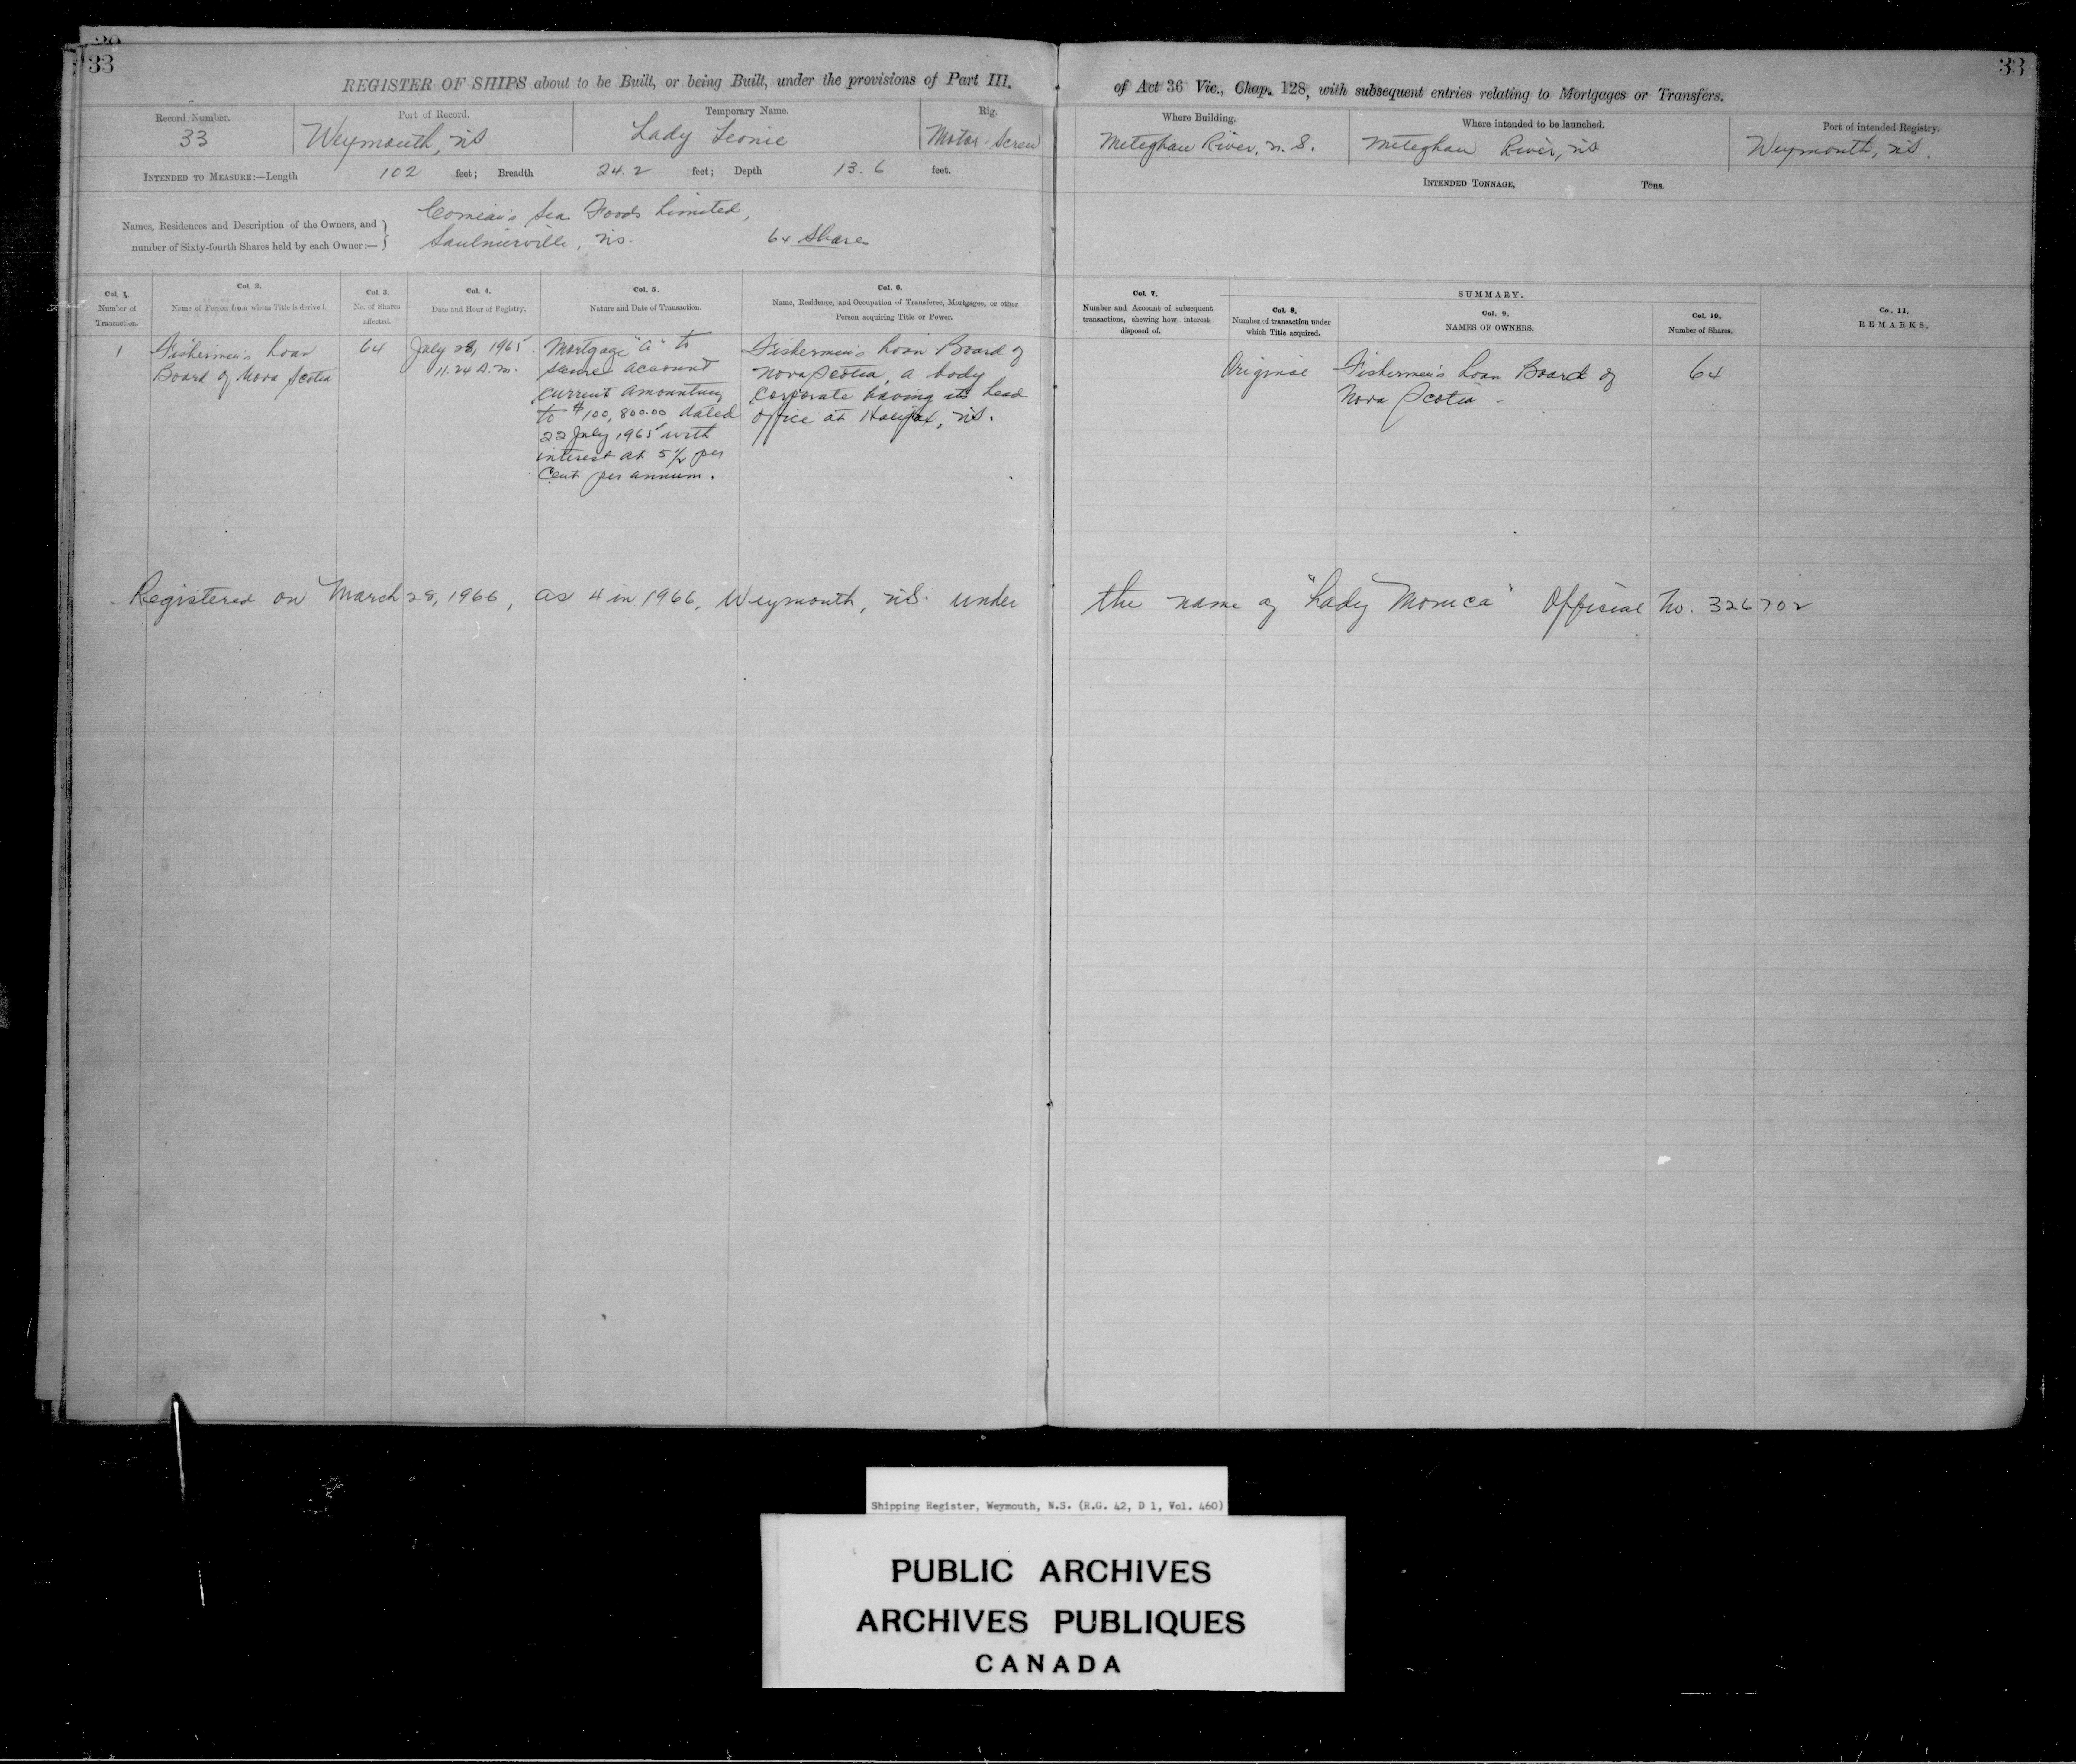 33
33
REGISTER OF SHIPS about to be Built, or being Built, under the provisions of Part III.
of Act 36 Vic., Chap. 128, with subsequent entries relating to Mortgages or Transfers.
Record Number.
33
Port of Record.
Weymouth, NS
Temporary Name.
Lady Leonie
Rig.
Motor-Screw
Where Building.
Meteghan River, N.S.
Where intended to be launched.
Meteghan River, NS
Port of intended Registry.
Weymouth, NS.
INTENDED TO MEASURE:—Length 102 feet; Breadth 24.2 feet; Depth 13.6 feet.
INTENDED TONNAGE, Tons.
Names, Residences and Description of the Owners, and
number of Sixty-fourth Shares held by each Owner:—
Comeau's Sea Foods Limited,
Saulnierville, NS. 64 Shares
Col. 1.
Number of
Transaction.
Col. 2.
Name of Person from whom Title is derived.
Col. 3.
No. of Shares
affected.
Col. 4.
Date and Hour of Registry.
Col. 5.
Nature and Date of Transaction.
Col. 6.
Name, Residence, and Occupation of Transferee, Mortgagee, or other
Person acquiring Title or Power.
Col. 7.
Number and Account of subsequent
transactions, shewing how interest
disposed of.
SUMMARY.
Col. 8.
Number of transaction under
which Title acquired.
Col. 9.
NAMES OF OWNERS.
Col. 10.
Number of Shares.
Co. 11.
REMARKS.
1
Fishermen's Loan
Board of Nova Scotia
64
July 28, 1965
11.24 A.M.
Mortgage "A" to
secure account
current amounting
to $100,800.00 dated
22 July 1965 with
interest at 5½ per
cent per annum.
Fishermen's Loan Board of
Nova Scotia, a body
corporate having its head
office at Halifax, NS.
Original
Fishermen's Loan Board of
Nova Scotia -
64
Registered on March 28, 1966, as 4 in 1966, Weymouth, NS. under the name of "Lady Monica" Official No. 326702
Shipping Register, Weymouth, N.S. (R.G. 42, D 1, Vol. 460)
PUBLIC ARCHIVES
ARCHIVES PUBLIQUES
CANADA